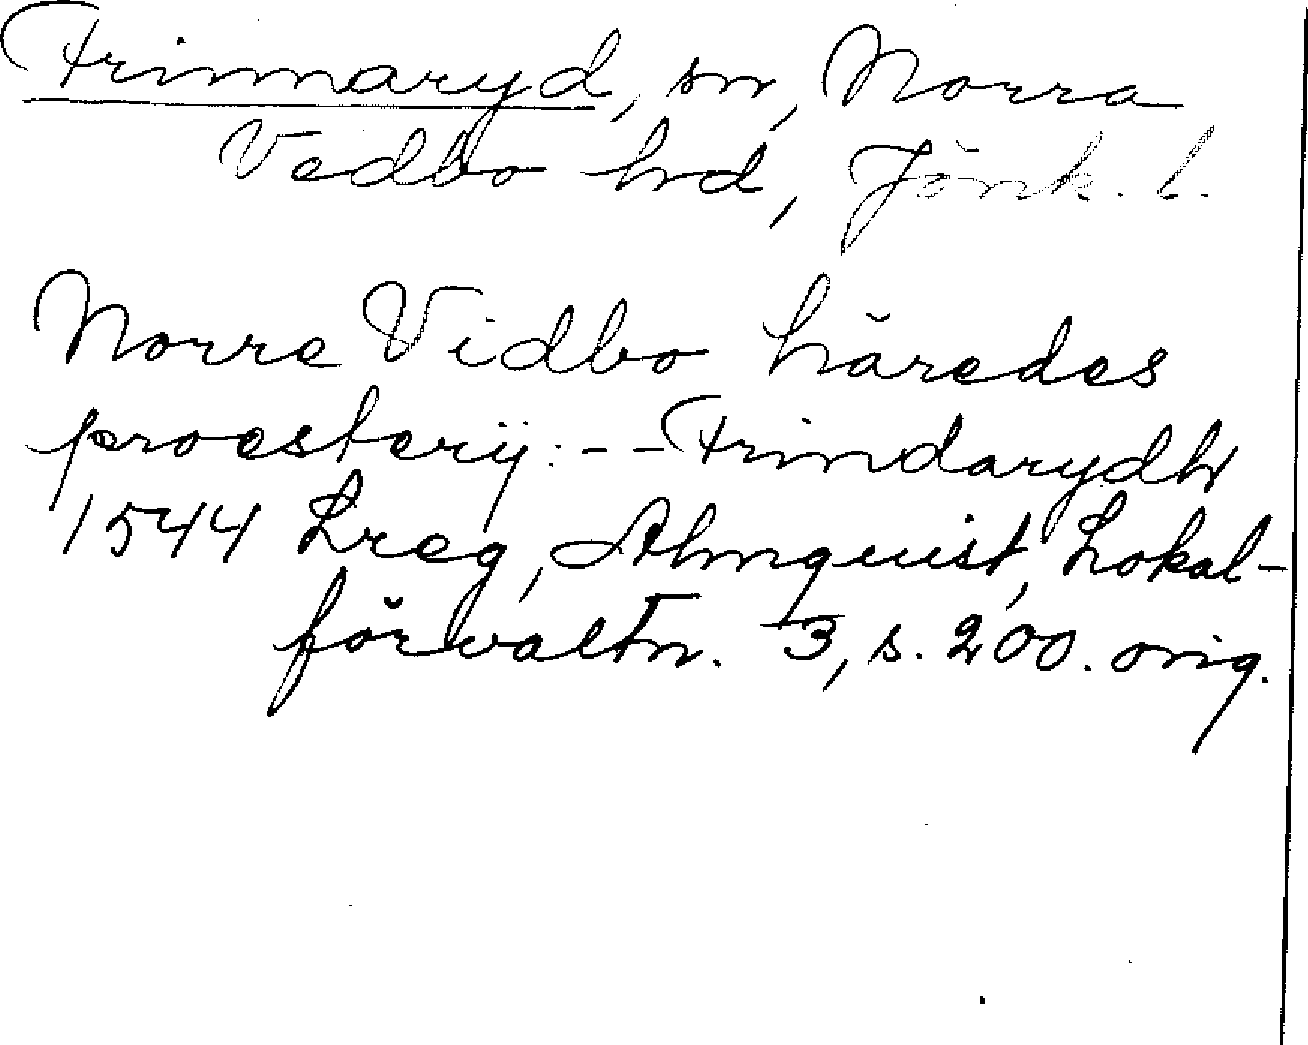 Frinnaryd, sn, Norra
Vedbo hrd, Jönk. l.
Norre Vidbo häredes
proesterij: - - Frindarydh
1544 Lreg, Almquist, Lokal-
förvaltn. 3, s. 200. orig.